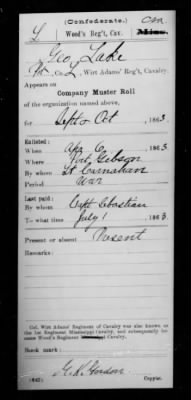 (Confederate.)
L Wood's Reg't, Cav. Con. Miss.
Geo Lake
Pvt., Co. L, Wirt Adams' Reg't, Cavalry.
Appears on
Company Muster Roll
of the organization named above,
for Sept & Oct, 1863
Enlisted:
When Apr 6, 1863
Where Port Gibson
By whom Lt Carnahan
Period War
Last paid:
By whom Capt Sebastian
To what time July 1, 1863
Present or absent Present
Remarks:
Col. Wirt Adams' Regiment of Cavalry was also known as
the 1st Regiment Mississippi Cavalry, and subsequently became
Wood's Regiment Cavalry.
Book mark:
G. K. Gordon
(642) Copyist.